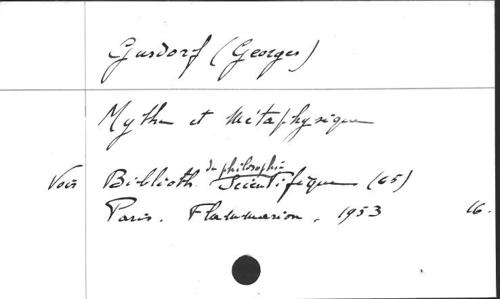 Gusdorf (Georges)
Mythe et Métaphysique
Voir Biblioth. de philosophie Scientifique (65)
Paris. Flammarion, 1953 16.